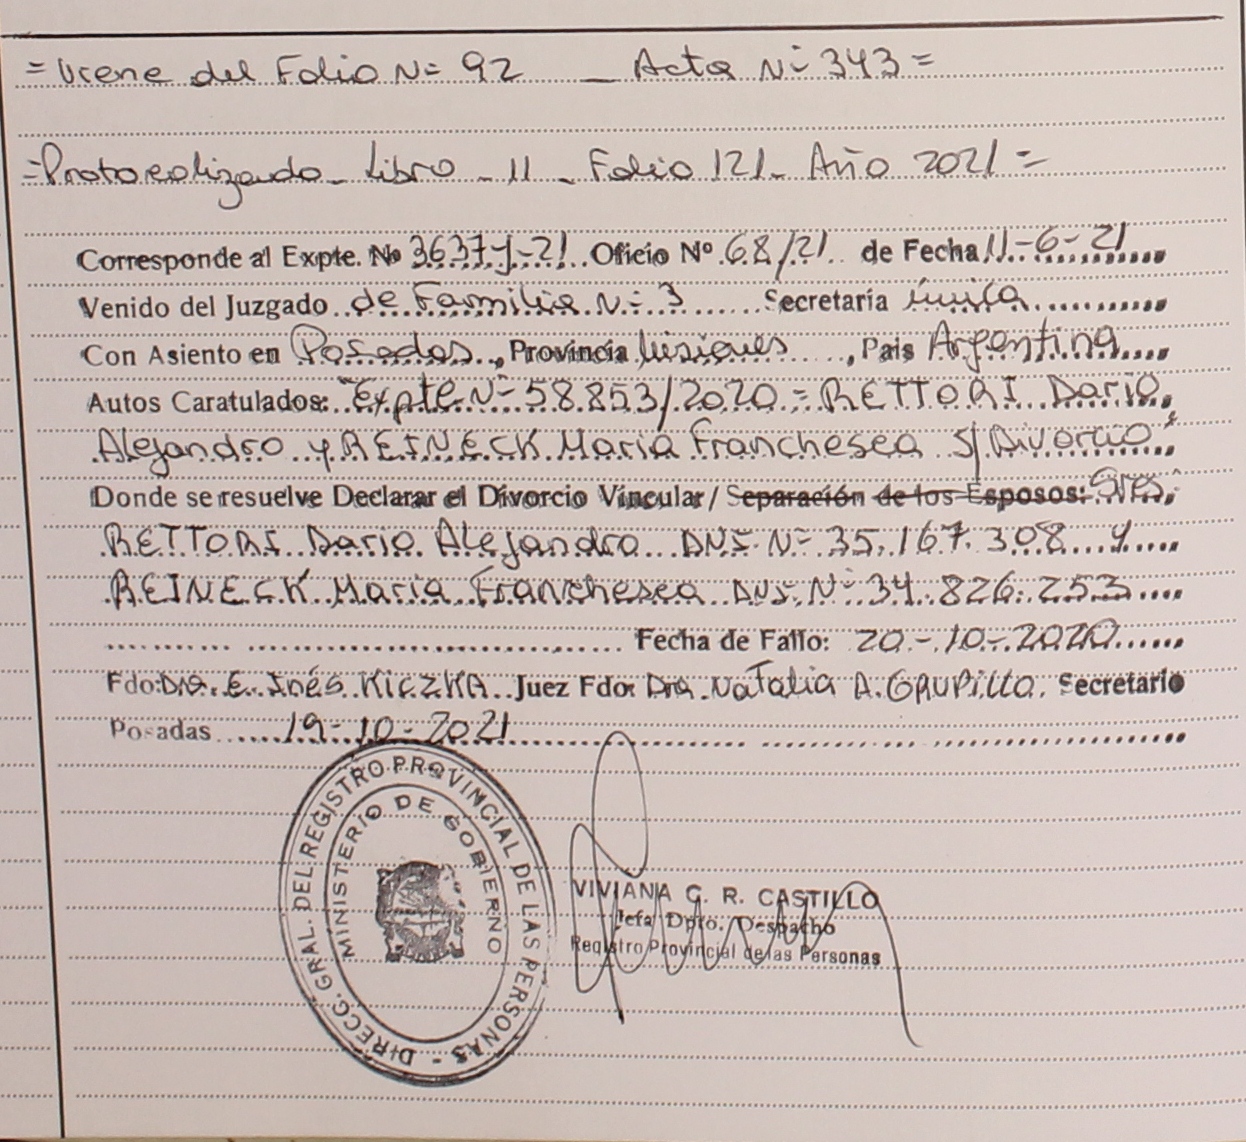 = Viene del Folio Nº 92 _ Acta Nº 343 =
= Protocolizado _ Libro _ 11 _ Folio 121 _ Año 2021 =
Corresponde al Expte. Nº 3637-J-21 Oficio Nº 68/21 de Fecha 11-6-21
Venido del Juzgado de Familia Nº 3 Secretaría única
Con Asiento en Posadas, Provincia Misiones, Pais Argentina
Autos Caratulados: "Expte Nº 58.853/2020 = RETTORI Dario,
Alejandro y REINECK Maria Franchesca s/Divorcio"
Donde se resuelve Declarar el Divorcio Vincular / Separación de los Esposos: Sres.
RETTORI Dario Alejandro DNI Nº 35.167.308 y
REINECK Maria Franchesca DNI Nº 34.826.253
Fecha de Fallo: 20-10-2020
Fdo: Dra. E. Inés KICZKA Juez Fdo: Dra. Natalia A. GRUPILLO. Secretario
Posadas 19-10-2021
DIRECC. GRAL. DEL REGISTRO PROVINCIAL DE LAS PERSONAS -
MINISTERIO DE GOBIERNO
VIVIANA C. R. CASTILLO
Jefa Dpto. Despacho
Registro Provincial de las Personas